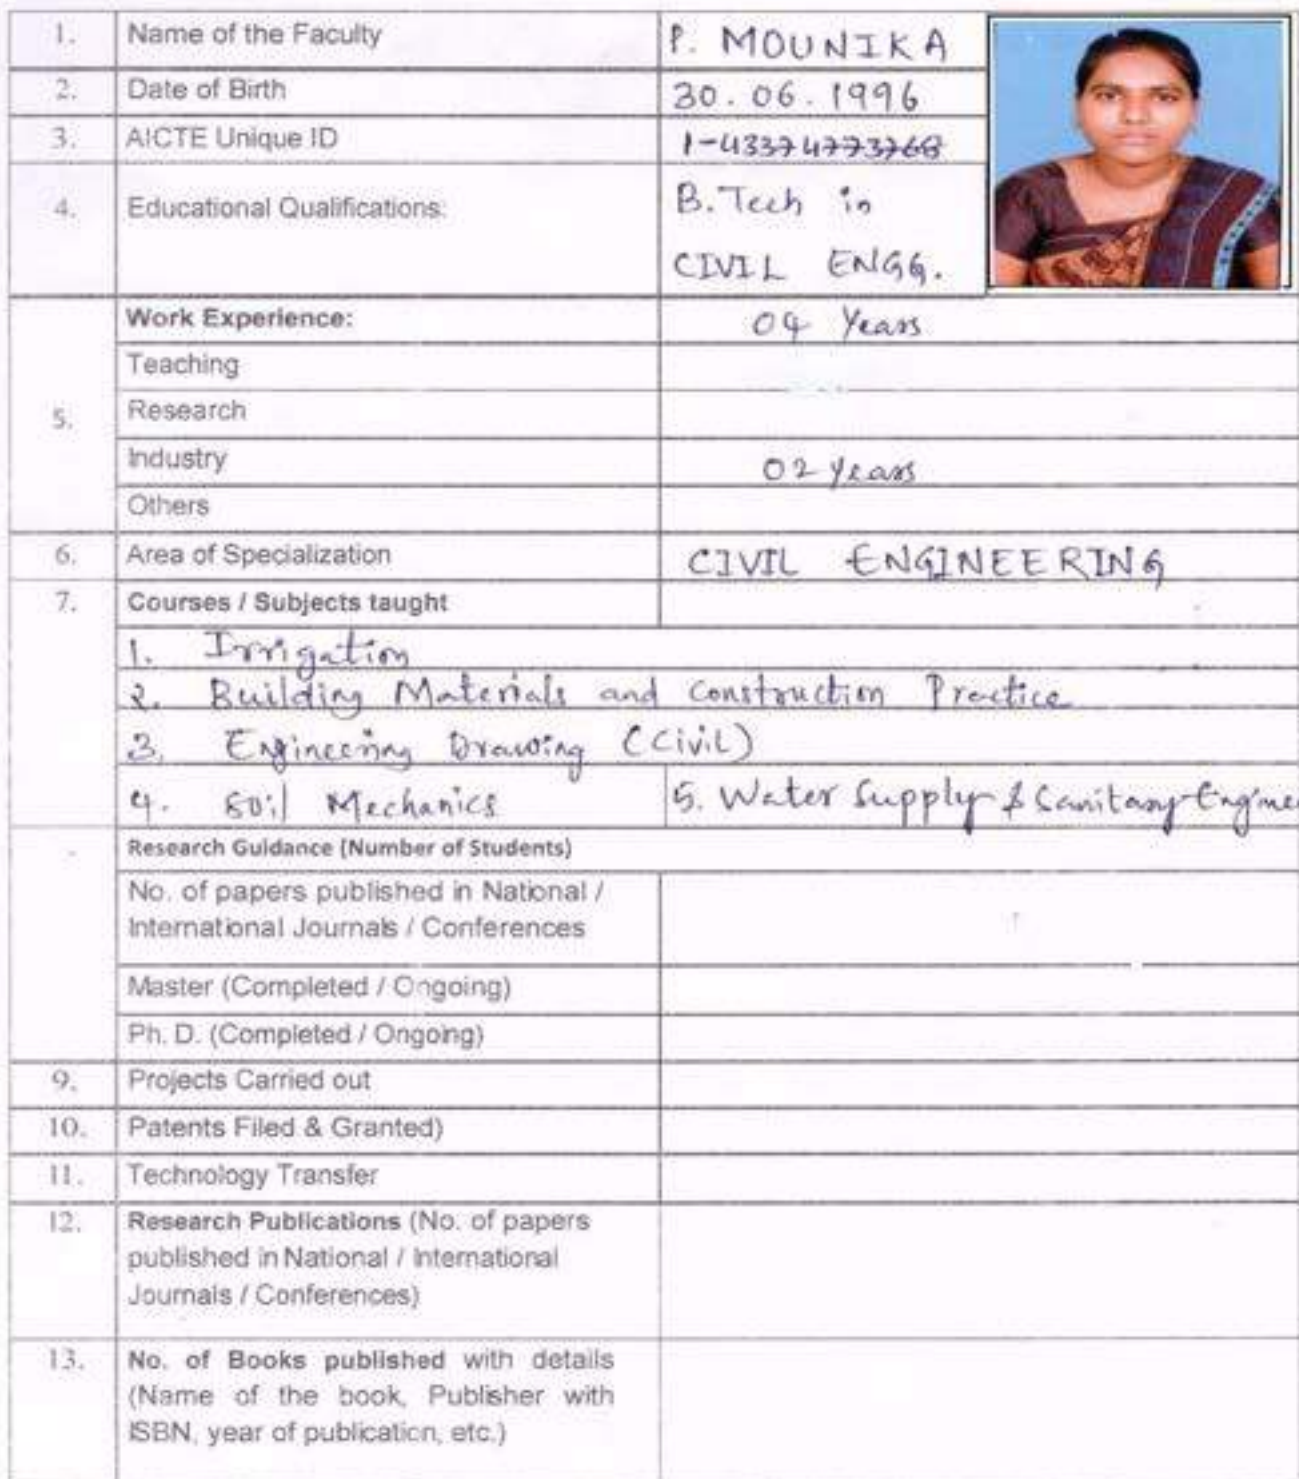 1. Name of the Faculty P. MOUNIKA
2. Date of Birth 30.06.1996
3. AICTE Unique ID 1-43374773768
4. Educational Qualifications: B.Tech in
CIVIL ENGG.
Work Experience: 04 Years
Teaching
5. Research
Industry 02 years
Others
6. Area of Specialization CIVIL ENGINEERING
7. Courses / Subjects taught
1. Irrigation
2. Building Materials and Construction Practice
3. Engineering Drawing (Civil)
4. Soil Mechanics 5. Water Supply & Sanitary Engine
Research Guidance (Number of Students)
No. of papers published in National /
International Journals / Conferences
Master (Completed / Ongoing)
Ph. D. (Completed / Ongoing)
9. Projects Carried out
10. Patents Filed & Granted)
11. Technology Transfer
12. Research Publications (No. of papers
published in National / International
Journals / Conferences)
13. No. of Books published with details
(Name of the book, Publisher with
ISBN, year of publication, etc.)